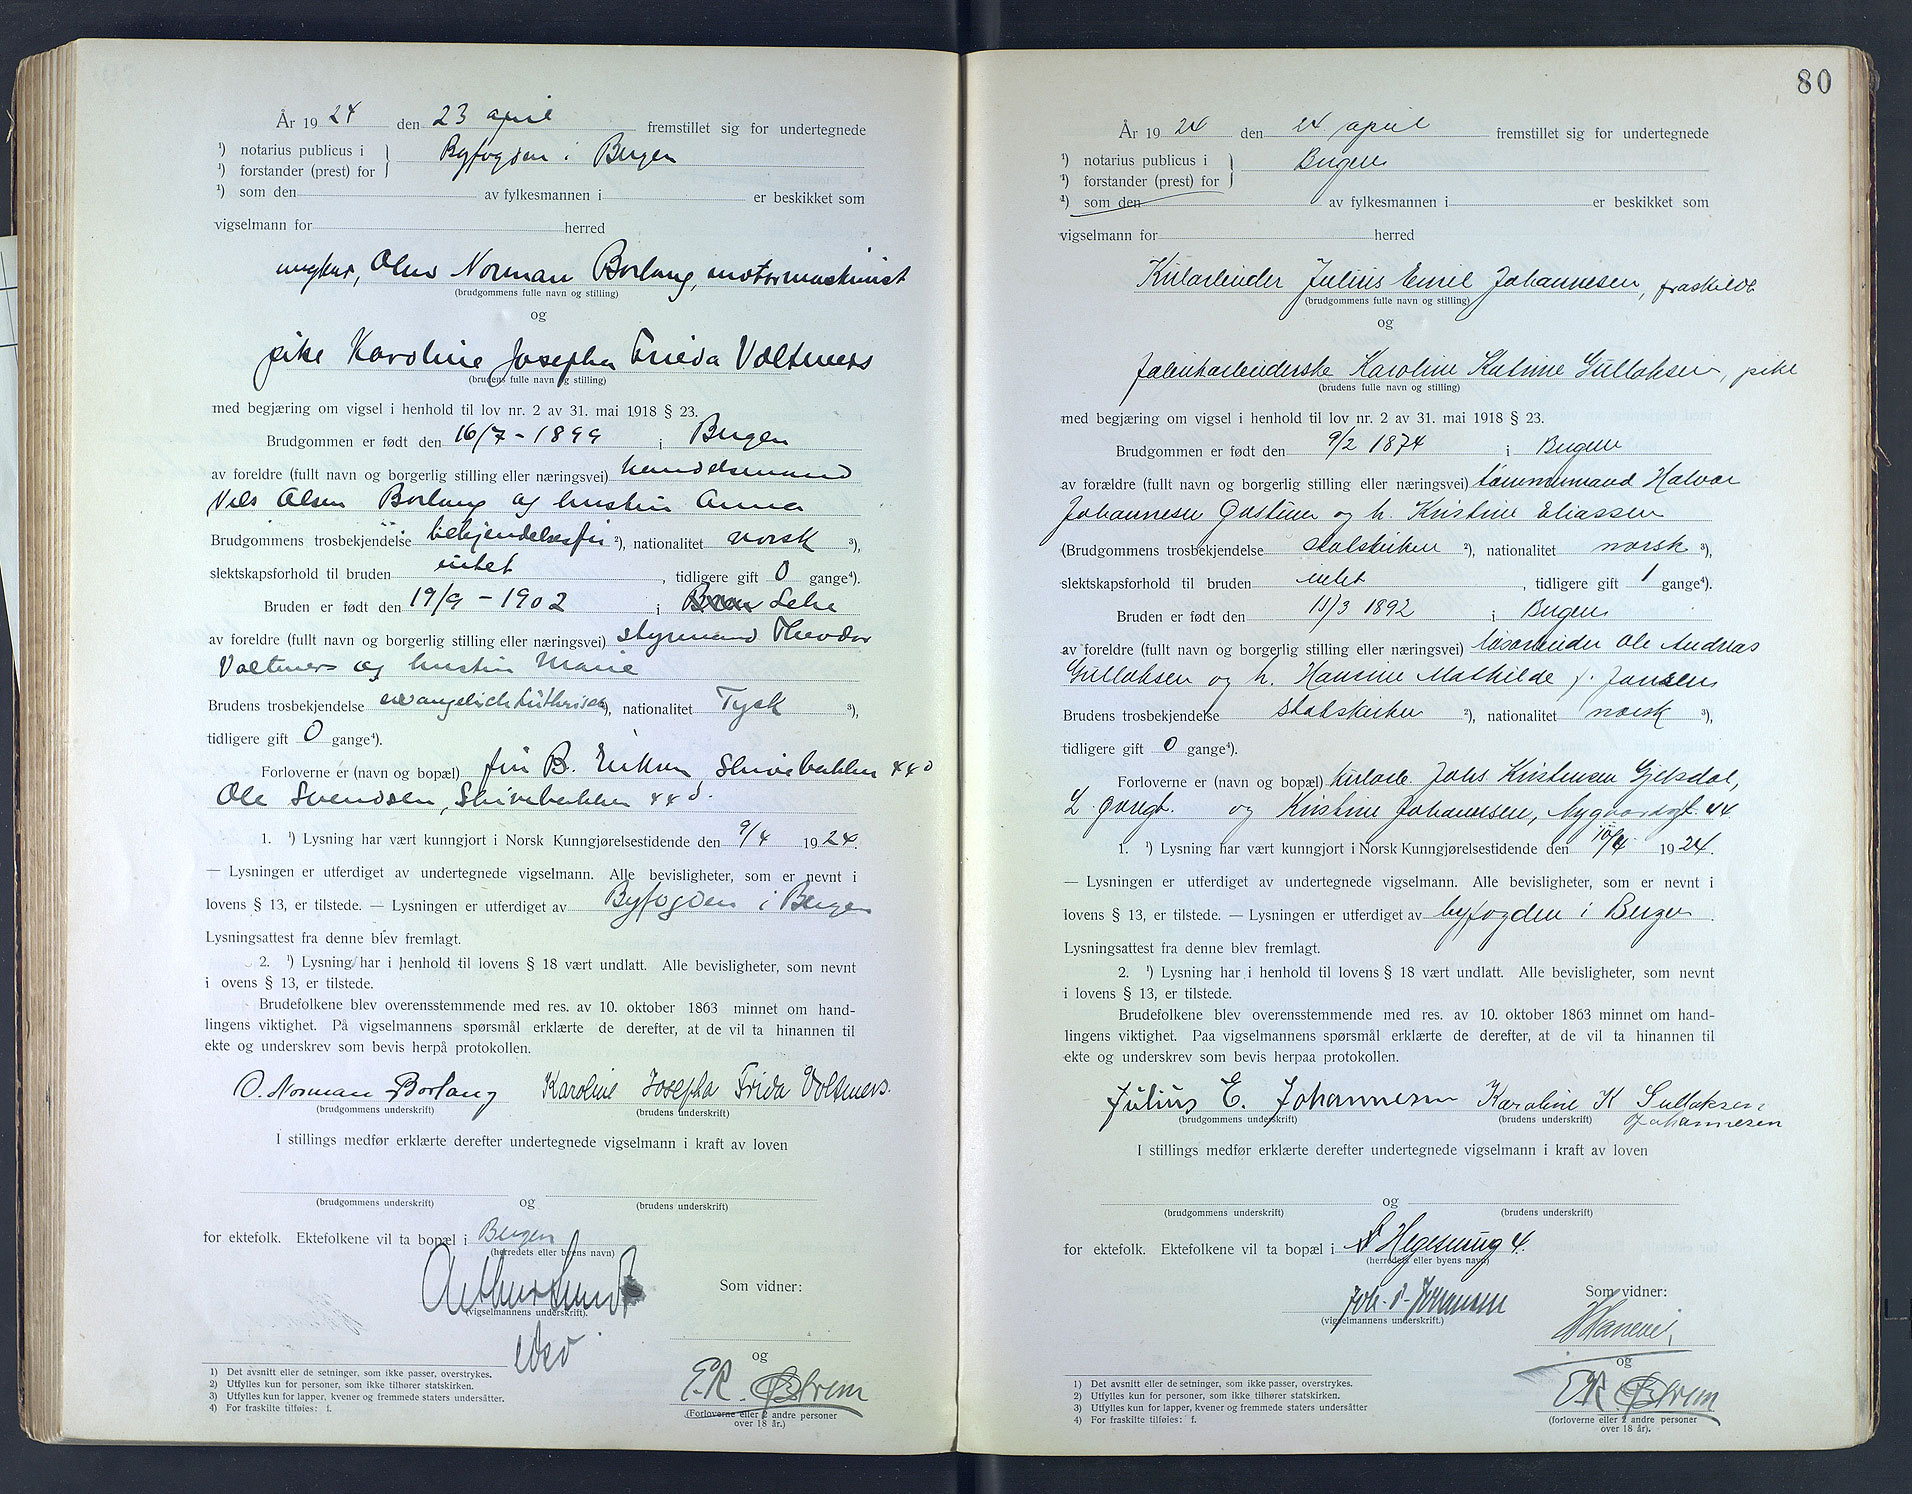 År 1924 den 23 april fremstillet sig for undertegnede
¹) notarius publicus i
¹) forstander (prest) for } Byfogden i Bergen
¹) som den av fylkesmannen i er beskikket som
vigselmann for herred
ungkar, Olus Norman Borlaug, motormaskinist
(brudgommens fulle navn og stilling)
og
pike Karoline Josepha Frieda Voltmers
(brudens fulle navn og stilling)
med begjæring om vigsel i henhold til lov nr. 2 av 31. mai 1918 § 23.
Brudgommen er født den 16/7 - 1899 i Bergen
av foreldre (fullt navn og borgerlig stilling eller næringsvei) handelsmand
Nils Olsen Borlaug og hustru Anna
Brudgommens trosbekjendelse bekjendelsesfri ²), nationalitet norsk ³),
slektskapsforhold til bruden intet, tidligere gift 0 gange⁴).
Bruden er født den 19/9 - 1902 i Lehe
av foreldre (fullt navn og borgerlig stilling eller næringsvei) styrmand Theodor
Voltmers og hustru Marie
Brudens trosbekjendelse evangelisch luthrisch ²), nationalitet Tysk ³),
tidligere gift 0 gange⁴).
Forloverne er (navn og bopæl) fru B. Eriksen, Skivebakken 44 d
Ole Svendsen, Skivebakken 44 d.
1. ¹) Lysning har vært kunngjort i Norsk Kunngjørelsestidende den 9/4 1924.
— Lysningen er utferdiget av undertegnede vigselmann. Alle bevisligheter, som er nevnt i
lovens § 13, er tilstede. — Lysningen er utferdiget av Byfogden i Bergen
Lysningsattest fra denne blev fremlagt.
2. ¹) Lysning har i henhold til lovens § 18 vært undlatt. Alle bevisligheter, som nevnt
i ovens § 13, er tilstede.
Brudefolkene blev overensstemmende med res. av 10. oktober 1863 minnet om hand-
lingens viktighet. På vigselmannens spørsmål erklærte de derefter, at de vil ta hinannen til
ekte og underskrev som bevis herpå protokollen.
O. Norman Borlaug Karoline Josepha Frida Voltmers.
(brudgommens underskrift) (brudens underskrift)
I stillings medfør erklærte derefter undertegnede vigselmann i kraft av loven
og
(brudgommens underskrift) (brudens underskrift)
for ektefolk. Ektefolkene vil ta bopæl i Bergen
(herredets eller byens navn)
Som vidner:
(vigselmannens underskrift).
og
E.R. Østrem
(Forloverne eller 2 andre personer
over 18 år.)
1) Det avsnitt eller de setninger, som ikke passer, overstrykes.
2) Utfylles kun for personer, som ikke tilhører statskirken.
3) Utfylles kun for lapper, kvener og fremmede staters undersåtter.
4) For fraskilte tilføies: f.
80
År 1924 den 24 april fremstillet sig for undertegnede
¹) notarius publicus i
¹) forstander (prest) for } Bergen
¹) som den av fylkesmannen i er beskikket som
vigselmann for herred
Kularbeider Julius Emil Johannesen, fraskilt
(brudgommens fulle navn og stilling)
og
fabrikarbeiderske Karoline Katrine Gullaksen, pike
(brudens fulle navn og stilling)
med begjæring om vigsel i henhold til lov nr. 2 av 31. mai 1918 § 23.
Brudgommen er født den 9/2 1874 i Bergen
av forældre (fullt navn og borgerlig stilling eller næringsvei) tømmermand Halvor
Johannesen Gastiner og h. Kristine Eliassen
(Brudgommens trosbekjendelse statskirken ²), nationalitet norsk ³),
slektskapsforhold til bruden intet, tidligere gift 1 gange⁴).
Bruden er født den 11/3 1892 i Bergen
av forældre (fullt navn og borgerlig stilling eller næringsvei) løsarbeider Ole Andreas
Gullaksen og h. Hansine Mathilde f. Jansen
Brudens trosbekjendelse statskirken ²), nationalitet norsk ³),
tidligere gift 0 gange⁴).
Forloverne er (navn og bopæl) kularb. Johs Kristensen Gjelsdal,
og Kristine Johannesen, Nygaardsgt. 44
1. ¹) Lysning har vært kunngjort i Norsk Kunngjørelsestidende den 10/4 1924.
— Lysningen er utferdiget av undertegnede vigselmann. Alle bevisligheter, som er nevnt i
lovens § 13, er tilstede. — Lysningen er utferdiget av byfogden i Bergen.
Lysningsattest fra denne blev fremlagt.
2. ¹) Lysning har i henhold til lovens § 18 vært undlatt. Alle bevisligheter, som nevnt
i lovens § 13, er tilstede.
Brudefolkene blev overensstemmende med res. av 10. oktober 1863 minnet om hand-
lingens viktighet. Paa vigselmannens spørsmål erklærte de derefter, at de vil ta hinannen til
ekte og underskrev som bevis herpaa protokollen.
Julius E. Johannesen Karoline K Gullaksen
Johannesen
(brudgommens underskrift) (brudens underskrift)
I stillings medfør erklærte derefter undertegnede vigselmann i kraft av loven
og
(brudgommens underskrift) (brudens underskrift)
for ektefolk. Ektefolkene vil ta bopæl i
(herredets eller byens navn)
Som vidner:
(vigselmannens underskrift.)
og
E.R. Østrem
(forloverne eller 2 andre personer
over 18 år).
1) Det avsnitt eller de setninger, som ikke passer, overstrykes.
2) Utfylles kun for personer, som ikke tilhører statskirken.
3) Utfylles kun for lapper, kvener og fremmede staters undersåtter
4) For fraskilte tilføies: f.